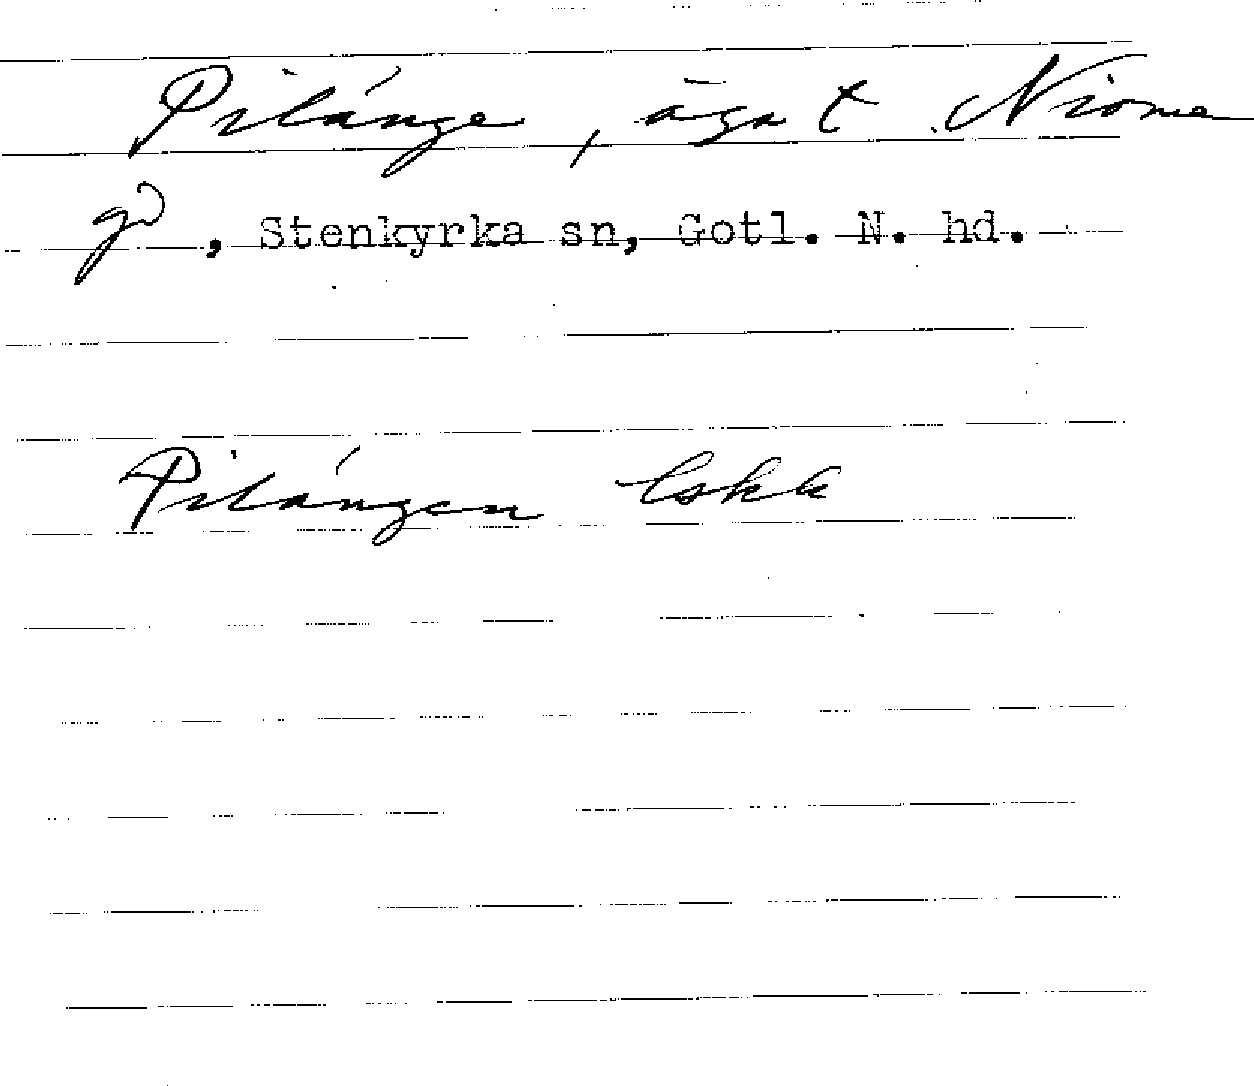 Pilánge, äga t. Niome
gd, Stenkyrka sn, Gotl. N. hd.
Pilángen